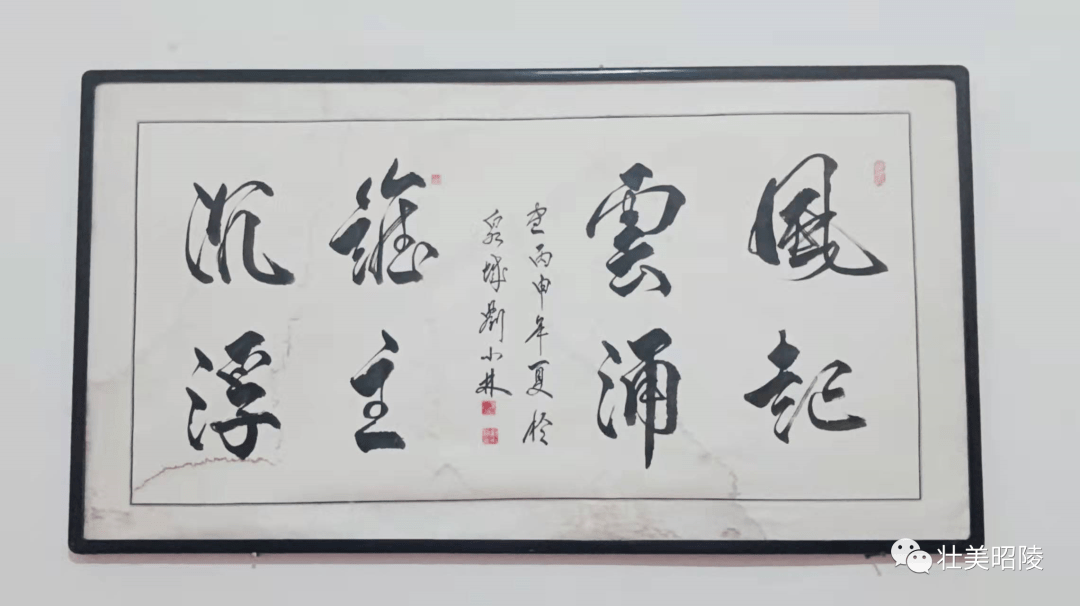 風起
雲涌
丙申年夏於
泉城劉小林
誰主
沉浮
壮美昭陵